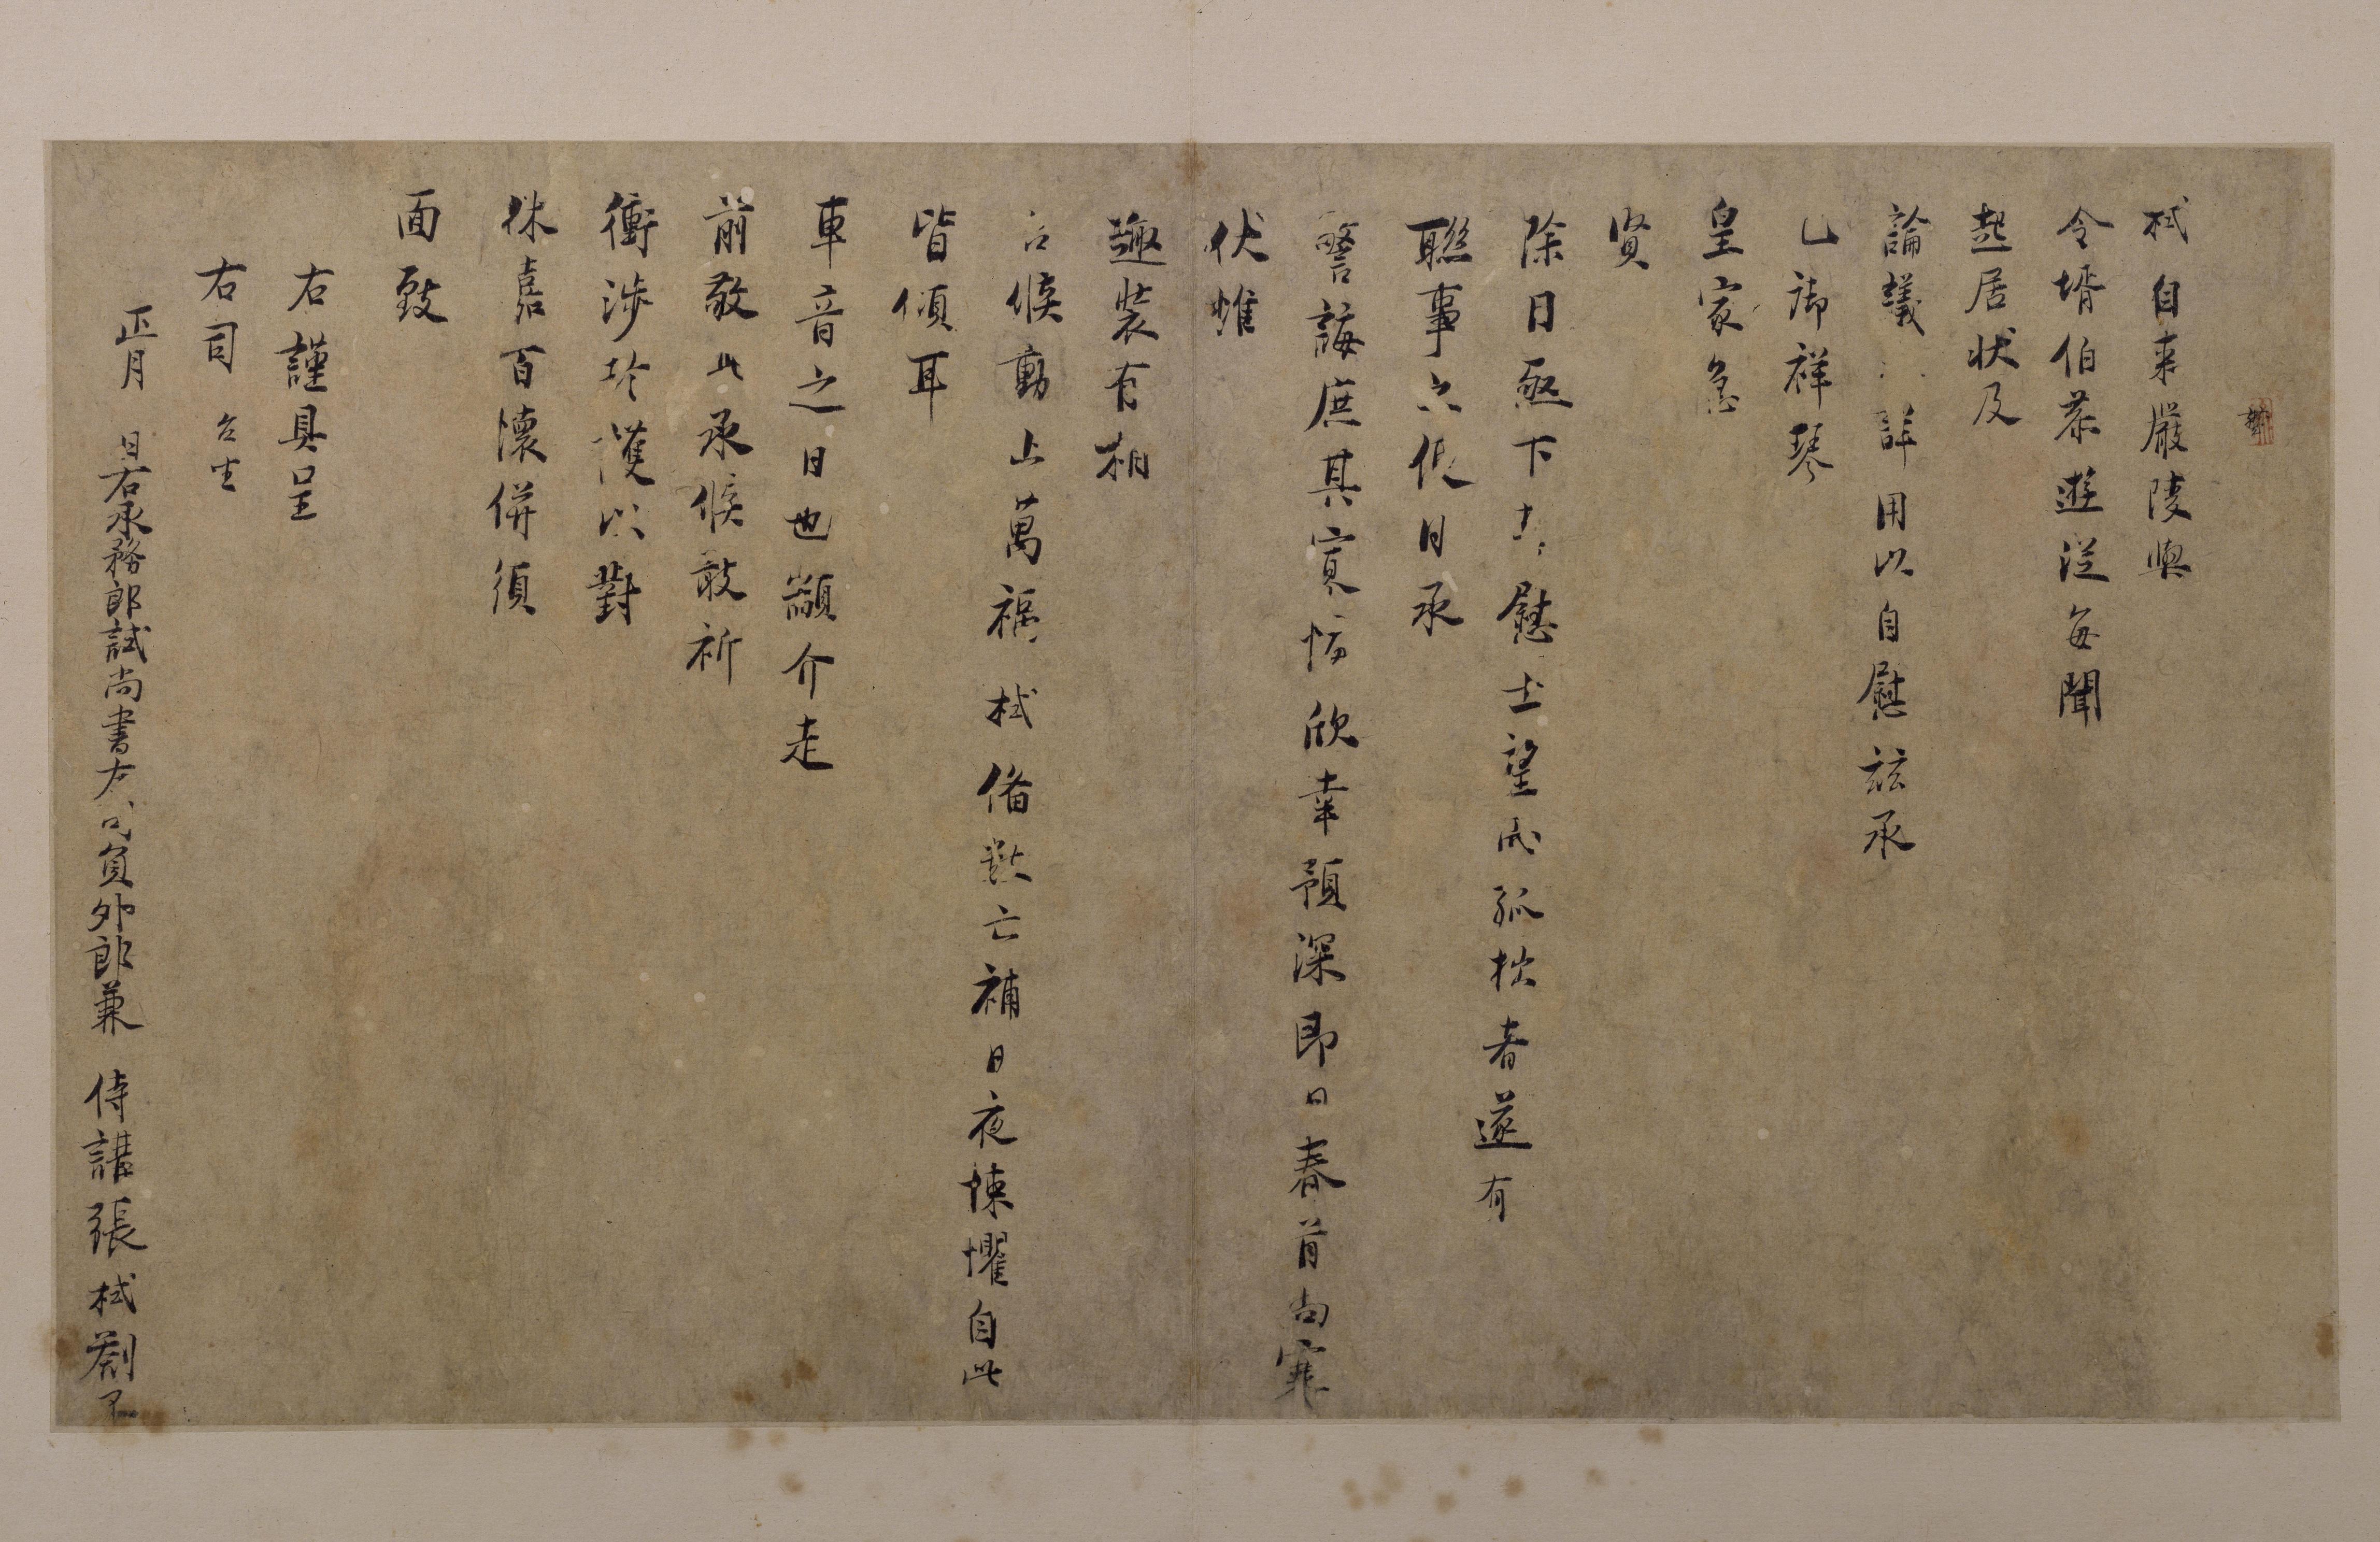 栻自來嚴陵與
令壻伯恭遊從每聞
起居狀及
論議詳用以自慰兹承
已御祥琴
皇家急
賢
除日亟下慰士望孤拙者遂有
聯事之便日承
警誨庶其寡悔欣幸預深即日春首尚寒
伏惟
趣裝有相
台候動止萬福栻備數亡補日夜悚懼自此
皆傾耳
車音之日也顓介走
前敬此承候敢祈
衝涉珍護以對
休嘉百懷併須
面致
右謹具呈
右司 台坐
正月 日右承務郎試尚書左司員外郎兼 侍講張栻劄子